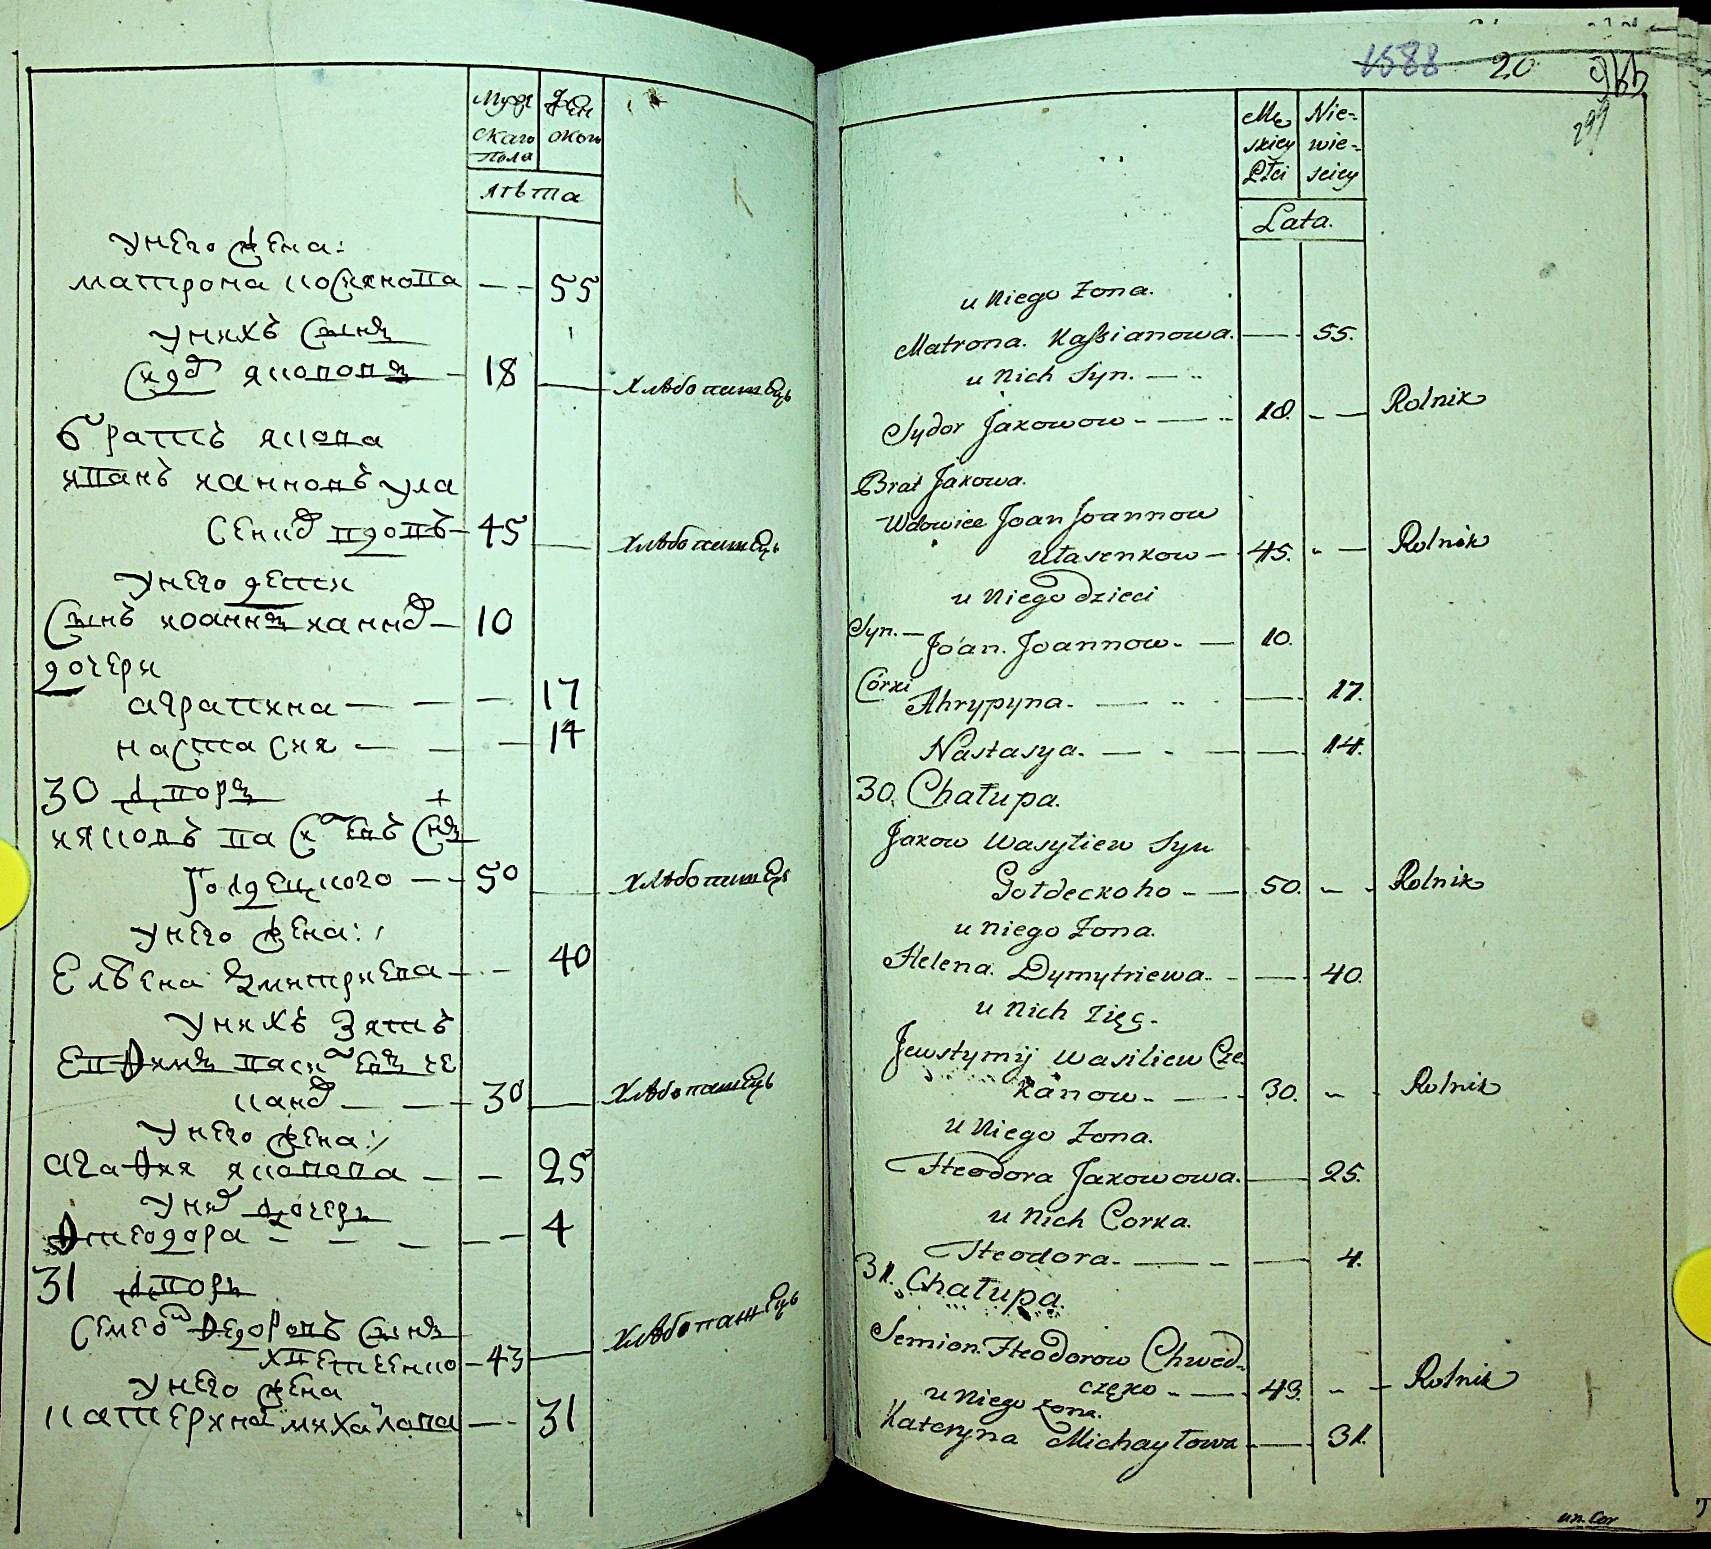 Мужескаго пола
женскаго
лѣта
у него жена:
матрона касиянова — 55
у нихъ сынъ
сидор якововъ — 18 — хлѣбопашецъ
братъ якова
иванъ ианновъ ула
сенко вдовъ — 45 — хлѣбопашецъ
у него дети
сынъ иоаннъ ианно — 10
дочери
аграпина — — — 17
настасия — — — 14
30 дворъ
ияковъ василевъ снъ
голдецкого — — 50 — хлѣбопашецъ
у него жена:
елѣена дмитриева — - 40
у нихъ зять
евфимъ василевъ че
кано — — 30 — хлѣбопашецъ
у него жена:
агафия яковова — — 25
у них дочеръ
фтеодора — — — 4
31 дворъ
семеон федоровъ сынъ
хветченко — 43 — хлѣбопашецъ
у него жена
катерина михайлова — - 31
1588 20
299
Męskiey Płci
Niewieściey
Lata.
u Niego Żona.
Matrona. Kaßianowa. — 55.
u Nich Syn. — -
Sydor Jakowow - — - 18. - — Rolnik
Brat Jakowa.
Wdowiec Joan Joannow
Ułasenkow — 45. - — Rolnik
u Niego dzieci
Syn. — Joan. Joannow. - — 10.
Córki
Ahrypyna. — - — 17.
Nastasya. — - — — 14.
30. Chałupa.
Jakow Wasyliew Syn
Gołdeckoho - — 50. - - Rolnik
u niego Żona.
Helena. Dymytriewa. - — 40.
u Nich Zięć.
Jewstymij Wasiliew Cze
kanow. - — 30. - - Rolnik
u Niego Żona.
Hteodora Jakowowa. — 25.
u Nich Corka.
Hteodora. — - — 4.
31. Chałupa.
Semion. Hteodorow Chwed-
częko - — 43. - - Rolnik
u Niego Żona.
Kateryna Michayłowa — 31.
un. Cor